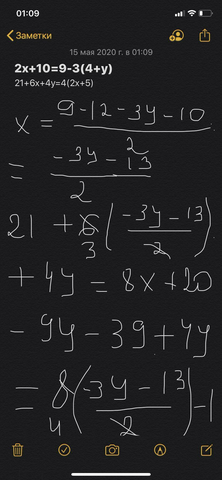 01:09
Заметки
15 мая 2020 г. в 01:09
2x+10=9-3(4+y)
21+6x+4y=4(2x+5)
x = (9-12-3y-10)/2
= (-3y-13)/2
21 + 6 3 ((-3y-13)/2)
+ 4y = 8x+20
-9y-39+4y
= 8 4 ((-3y-13)/2)-1